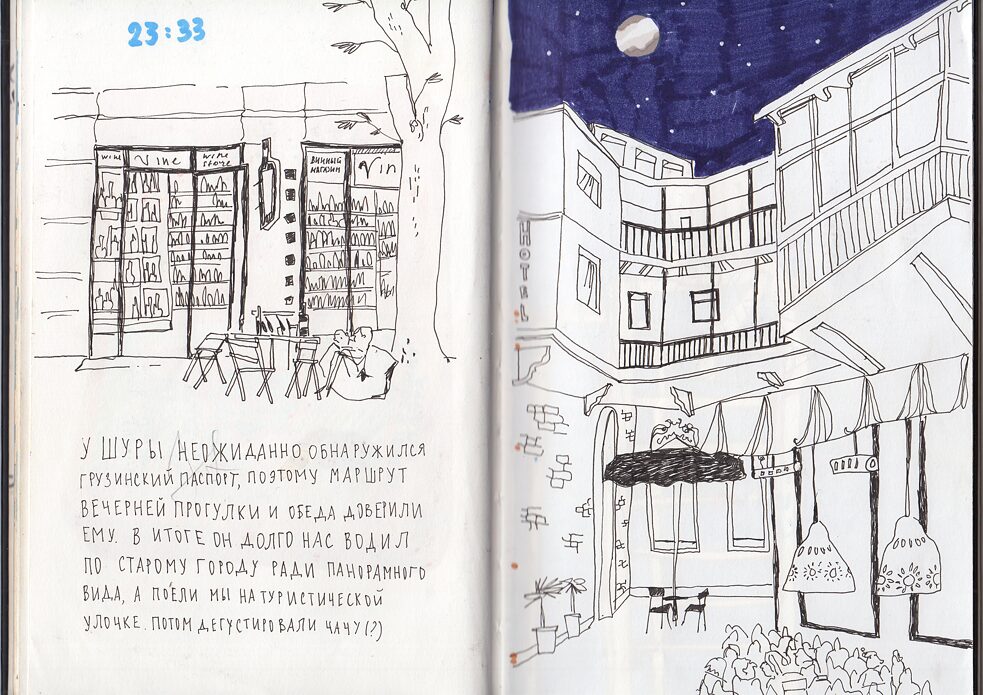 23:33
wine
Vine
wine
store
ВИННЫЙ
МАГАЗИН
Vin
HOTEL
У ШУРЫ НЕОЖИДАННО ОБНАРУЖИЛСЯ
ГРУЗИНСКИЙ ПАСПОРТ, ПОЭТОМУ МАРШРУТ
ВЕЧЕРНЕЙ ПРОГУЛКИ И ОБЕДА ДОВЕРИЛИ
ЕМУ. В ИТОГЕ ОН ДОЛГО НАС ВОДИЛ
ПО СТАРОМУ ГОРОДУ РАДИ ПАНОРАМНОГО
ВИДА, А ПОЕЛИ МЫ НА ТУРИСТИЧЕСКОЙ
УЛОЧКЕ. ПОТОМ ДЕГУСТИРОВАЛИ ЧАЧУ(?)